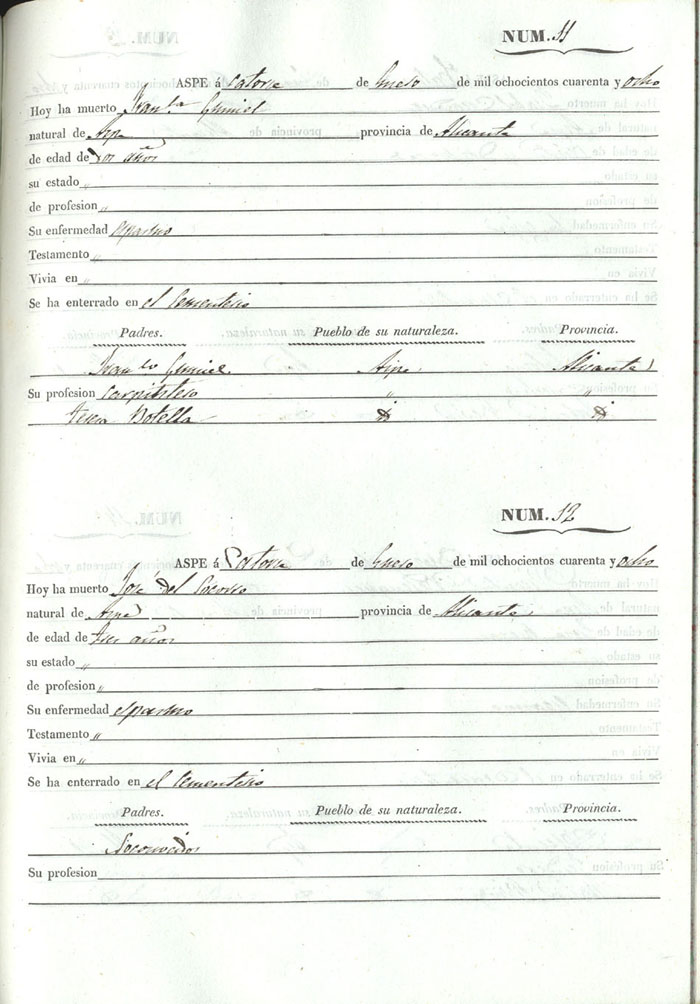 NUM. 11
ASPE á Catorse de Enero de mil ochocientos cuarenta y ocho
Hoy ha muerto Fran.ca Gumiel
natural de Aspe provincia de Alicante
de edad de dos años
su estado „
de profesion „
Su enfermedad espasmo
Testamento „
Vivia en „
Se ha enterrado en el Cementerio
Padres. Pueblo de su naturaleza. Provincia.
Fran.co Gumiel. Aspe. Alicante
Su profesion carpintero „ „
Teresa Botella id id
NUM. 12
ASPE á Catorse de Enero de mil ochocientos cuarenta y ocho
Hoy ha muerto José del Socorro
natural de Aspe provincia de Alicante.
de edad de tres años
su estado „
de profesion „
Su enfermedad espasmo
Testamento „
Vivia en „
Se ha enterrado en el Cementerio
Padres. Pueblo de su naturaleza. Provincia.
Su profesion